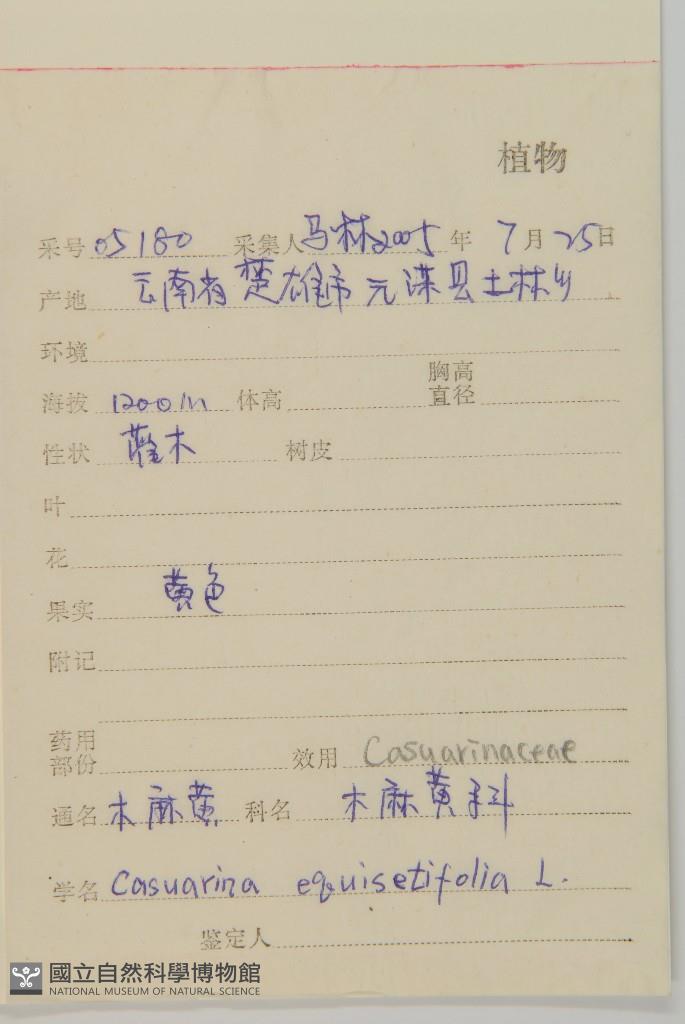 植物
采号 05180 采集人 马林 2005 年 7 月 25 日
产地 云南省楚雄市元谋县土林乡
环境
海拔 1200m 体高 胸高直径
性状 灌木 树皮
叶
花
果实 黄色
附记
药用部份 效用 Casuarinaceae
通名 木麻黄 科名 木麻黄科
学名 Casuarina equisetifolia L.
鉴定人
國立自然科學博物館
NATIONAL MUSEUM OF NATURAL SCIENCE